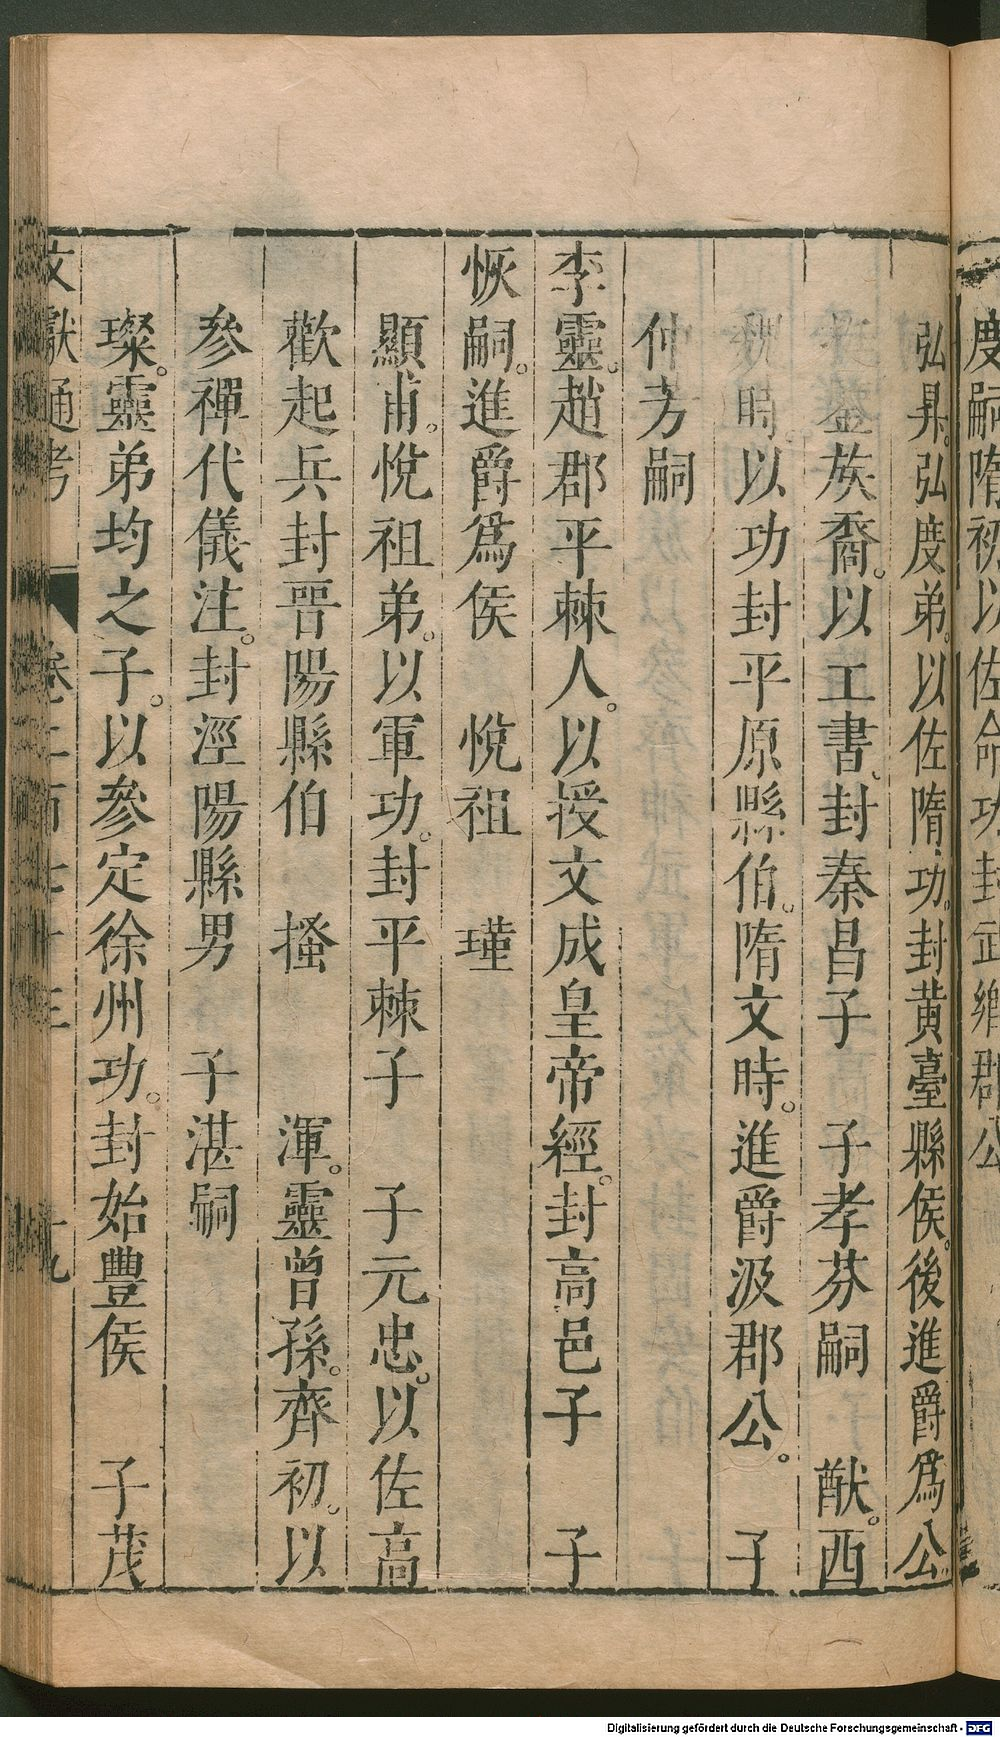 度嗣隋初以佐命功封武鄉郡公
弘昇。弘度弟。以佐隋功。封黃臺縣侯。後進爵爲公
族裔。以工書。封秦昌子 子孝芬嗣 猷。西
魏時。以功封平原縣伯。隋文時。進爵汲郡公。 子
仲方嗣
李靈。趙郡平棘人。以授文成皇帝經。封高邑子 子
恢嗣。進爵爲侯 悅祖 瑾
顯甫。悅祖弟。以軍功。封平棘子 子元忠。以佐高
歡起兵封晉陽縣伯 搔 渾。靈曾孫。齊初。以
參禪代儀注。封涇陽縣男 子湛嗣
璨。靈弟均之子。以參定徐州功。封始豐侯 子茂
文獻通考 卷二百七十三 十九
Digitalisierung gefördert durch die Deutsche Forschungsgemeinschaft - DFG